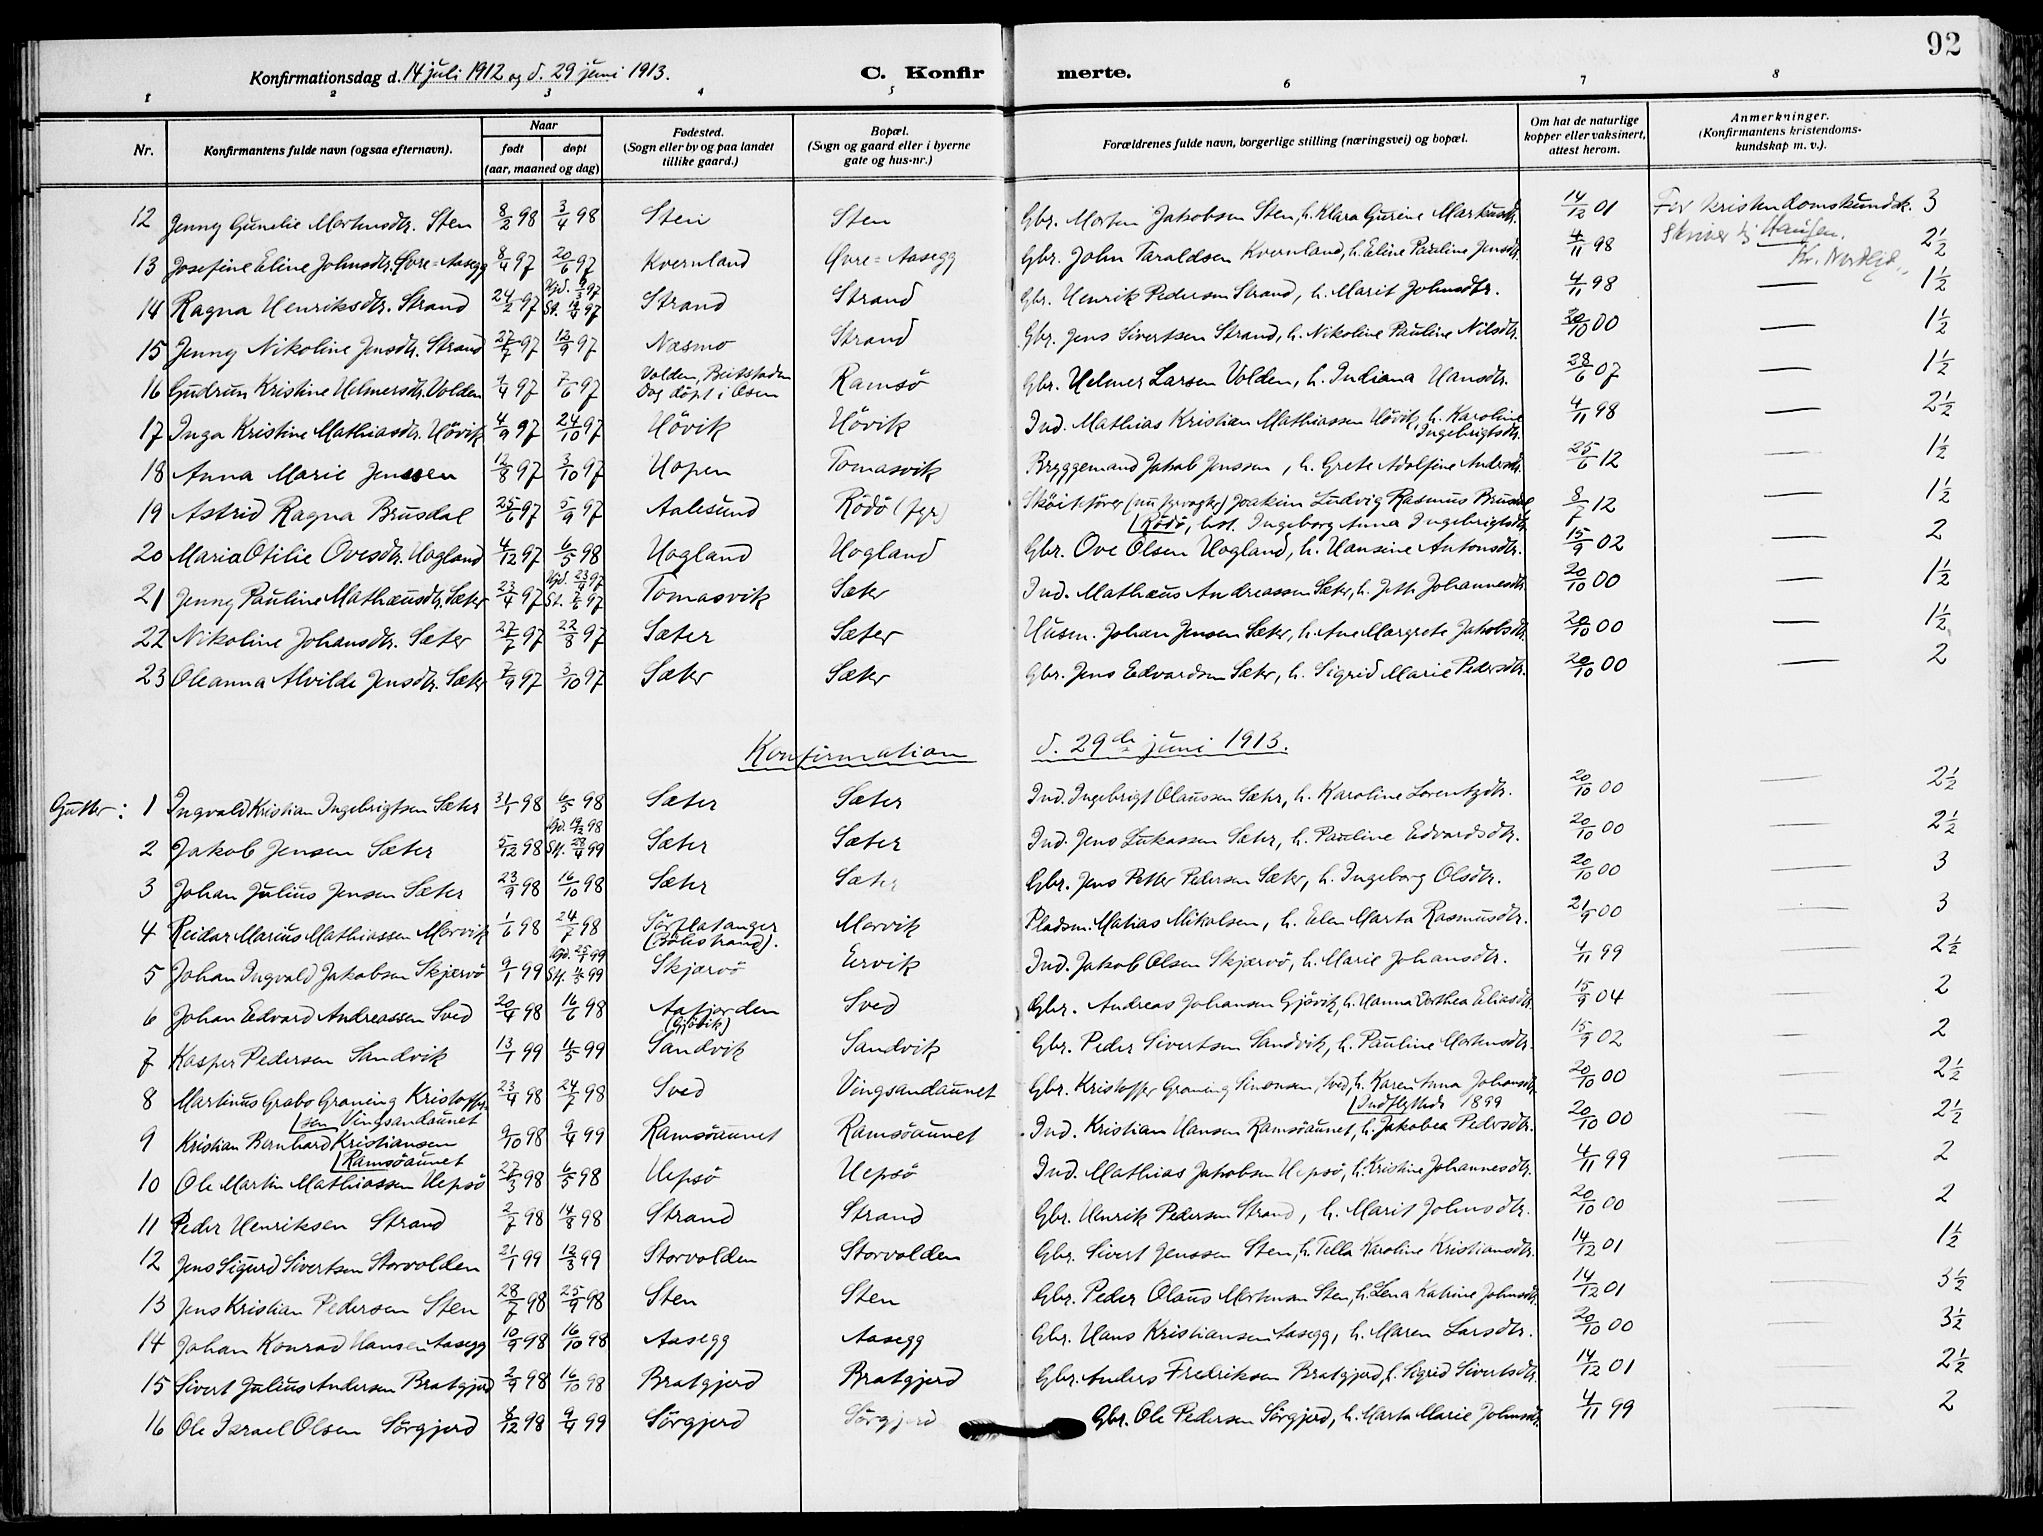 92
Konfirmationsdag d. 14 juli 1912 og d. 29 juni 1913. C. Konfirmerte.
1 2 3 4 5 6 7 8
Nr. | Konfirmantens fulde navn (ogsaa efternavn). | Naar født døpt (aar, maaned og dag) | Fødested. (Sogn eller by og paa landet tillike gaard.) | Bopæl. (Sogn og gaard eller i byerne gate og hus-nr.) | Forældrenes fulde navn, borgerlige stilling (næringsvei) og bopæl. | Om hat de naturlige kopper eller vaksinert, attest herom. | Anmerkninger. (Konfirmantens kristendomskundskap m. v.).
12 Jenny Gunelie Mortensdtr. Sten 8/2 98 3/4 98 Sten Sten Gbr. Morten Jakobsen Sten, h. Klara Gurine Markusdtr. 14/12 01 For Kristendomskundsk. 3
13 Josefine Eline Johnsdtr. Øvre=Aasegg 8/4 97 20/6 97 Kvernland Øvre=Aasegg Gbr. John Taraldsen Kvernland, h. Eline Pauline Jensdtr. 4/11 98 2½
14 Ragna Henriksdtr. Strand 24/2 97 Hjd. 9/3 97 St. 19/4 97 Strand Strand Gbr. Henrik Pedersen Strand, h. Marit Johnsdtr. 4/11 98 — 1½
15 Jenny Nikoline Jensdtr. Strand 27/7 97 12/9 97 Næsmo Strand Gbr. Jens Sivertsen Strand, h. Nikoline Pauline Nilsdtr. 20/10 00 — 1½
16 Gudrun Kristine Helmersdtr. Volden 9/4 97 7/6 97 Volden, Beitstaden Dog døpt i Osen Ramsö Gbr. Helmer Larsen Volden, h. Indiana Hansdtr. 28/6 07 — 1½
17 Inga Kristine Mathiasdtr. Hövik 4/9 97 24/10 97 Hövik Hövik Ind. Mathias Kristian Mathiassen Hövik, h. Karoline Ingebrigtsdtr. 4/11 98 — 2½
18 Anna Marie Jenssen 12/8 97 3/10 97 Hopen Tomasvik Bryggemand Jakob Jenssen, h. Grete Adolfine Andersdtr. 25/6 12 — 1½
19 Astrid Ragna Brusdal 25/6 97 5/9 97 Aalesund Rödö (fyr) Sköitefører (nu fyrvogter) Joakim Ludvig Rasmus Brusdal Rödö, hst. Ingeborg Anna Ingebrigtsdtr. 8/7 12 — 1½
20 Maria Otilie Ovesdtr. Hogland 4/12 97 6/5 98 Hogland Hogland Gbr. Ove Olsen Hogland, h. Hansine Antonsdtr. 15/9 02 — 2
21 Jenny Pauline Mathæusdtr. Sæter 23/4 97 Hjd. 23/4 97 St. 97 Tomasvik Sæter Ind. Mathæus Andreassen Sæter, h. Johannesdtr. 20/10 00 — 1½
22 Nikoline Johansdtr. Sæter 27/7 97 22/8 97 Sæter Sæter Husm. Johan Jensen Sæter, h. Ane Margrete Jakobsdtr. 20/10 00 — 1½
23 Oleanna Alvilde Jensdtr. Sæter 7/9 97 3/10 97 Sæter Sæter Gbr. Jens Edvardsen Sæter, h. Sigrid Marie Pedersdtr. 20/10 00 — 2
Konfirmation d. 29de juni 1913.
Gutter: 1 Ingvald Kristian Ingebrigtsen Sæter 31/1 98 6/5 98 Sæter Sæter Ind. Ingebrigt Olaussen Sæter, h. Karoline Lorentzdtr. 20/10 00 — 2½
2 Jakob Jensen Sæter 5/12 98 Hjd. 19/12 98 St. 23/4 99 Sæter Sæter Ind. Jens Lukassen Sæter, h. Pauline Edvardsdtr. 20/10 00 — 2½
3 Johan Julius Jensen Sæter 23/9 98 16/10 98 Sæter Sæter Gbr. Jens Petter Pedersen Sæter, h. Ingeborg Olsdtr. 20/10 00 — 3
4 Reidar Marius Mathiassen Morvik 1/6 98 24/7 98 Sörflatanger (Bölestrand). Morvik Pladsm. Matias Mikalsen, h. Elen Marta Rasmusdtr. 21/9 00 — 3
5 Johan Ingvald Jakobsen Skjærvö 9/1 99 Hjd. 25/1 99 St. 4/5 99 Skjærvö Ervik Ind. Jakob Olsen Skjærvö, h. Marie Johansdtr. 4/11 99 — 2½
6 Johan Edvard Andreassen Sved 20/4 98 16/6 98 Aafjorden (Gjövik) Sved Gbr. Andreas Johansen Gjövik, h. Hanna Dorthea Eliasdtr. 15/9 04 — 2
7 Kasper Pedersen Sandvik 13/1 99 4/5 99 Sandvik Sandvik Gbr. Peder Sivertsen Sandvik, h. Pauline Mortensdtr. 15/9 02 — 2
8 Martinus Grabo Groning Kristoffersen Vingsandaunet 23/4 98 24/7 98 Sved Vingsandaunet Gbr. Kristoffer Groning Simonsen, Sved, h. Karen Anna Johansdtr. Indflyttede 1899 20/10 00 — 2½
9 Kristian Bernhard Kristiansen Ramsöaunet 9/10 98 9/4 99 Ramsöaunet Ramsöaunet Ind. Kristian Hansen Ramsöaunet, h. Jakobea Pedersdtr. 20/10 00 — 2½
10 Ole Martin Mathiassen Hepsö 27/3 98 6/5 98 Hepsö Hepsö Ind. Mathias Jakobsen Hepsö, h. Kristine Johannesdtr. 4/11 99 — 2
11 Peder Henriksen Strand 2/7 98 14/8 98 Strand Strand Gbr. Henrik Pedersen Strand, h. Marit Johnsdtr. 20/10 00 — 2
12 Jens Sigurd Sivertsen Storvolden 21/1 99 12/3 99 Storvolden Storvolden Gbr. Sivert Jenssen Sten, h. Tella Karoline Kristiansdtr. 14/12 01 — 1½
13 Jens Kristian Pedersen Sten 28/7 98 25/9 98 Sten Sten Gbr. Peder Olaus Mortensen Sten, h. Lena Katrine Johnsdtr. 14/12 01 — 3½
14 Johan Konrad Hansen Aasegg 10/9 98 16/10 98 Aasegg Aasegg Gbr. Hans Kristiansen Aasegg, h. Maren Larsdtr. 20/10 00 — 3½
15 Sivert Julius Andersen Bratgjerd 2/9 98 16/10 98 Bratgjerd Bratgjerd Gbr. Anders Fredriksen Bratgjerd, h. Sigrid Sivertsdtr. 14/12 01 — 2½
16 Ole Israel Olsen Sörgjerd 8/12 98 9/4 99 Sörgjerd Sörgjerd Gbr. Ole Pedersen Sörgjerd, h. Marta Marie Johnsdtr. 4/11 99 — 2